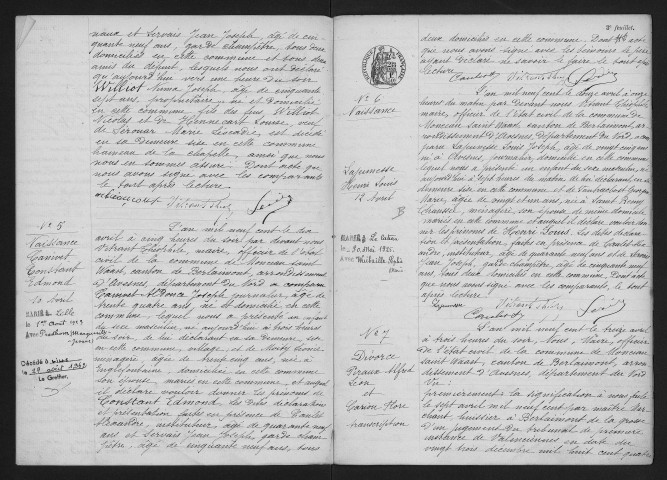 naux et Servais Jean Joseph, âgé de cin-
quante neuf ans, garde champêtre, tous deux
domiciliés en cette commune et tous deux
amis du défunt, lesquels nous ont déclaré
qu'aujourd'hui vers une heure du soir
Williot Numa Joseph, âgé de cinquante
sept ans, propriétaire, né et domicilié
en cette commune fils des feus Williot
Nicolas et de Hennecart Louise, veuf
de Marie Léocadie, est décédé
en sa demeure sise en cette commune
hameau de la chapelle, ainsi que nous
nous en sommes assuré. Dont acte que
nous avons signé avec les comparants
le tout après lecture.
N° 5
Naissance
Constant
Edmond
10 avril
MARIÉ à Lille
le 1er Août 1929
avec
Décédé à
le 29 août 1962
Le Greffier
L'an mil neuf cent le dix
avril à cinq heures du soir par devant nous
Théophile, maire, officier de l'état
civil de la commune de Monceau Saint
Waast, canton de Berlaimont, arrondissement
d'Avesnes, département du Nord a comparu
Joseph journalier âgé de
trente quatre ans, né et domicilié en cette
commune, lequel nous a présenté un enfant
du sexe masculin, né aujourd'hui à trois heures
du soir, de lui déclarant en sa demeure, sise
en cette commune,
ménagère âgée de trente cinq ans, née à
Englefontaine, domiciliée en cette commune
son épouse, mariés en cette commune, et auquel
il déclare vouloir donner les prénoms de
Constant Edmond. Les dites déclaration
et présentation faites en présence de Paulet
instituteur, âgé de quarante neuf
ans et Servais Jean Joseph, garde cham-
pêtre, âgé de cinquante neuf ans, tous
2e feuillet.
deux domiciliés en cette commune. Dont acte
que nous avons signé avec les témoins le père
ayant déclaré ne savoir le faire le tout après
lecture.
N° 6
Naissance
Lajeunesse
Henri Louis
12 Avril
MARIÉ à
le 30 Mai 1925
avec
L'an mil neuf cent le douze avril à onze
heures du matin par devant nous Théophile
maire, officier de l'état civil de la commune de
Monceau Saint Waast, canton de Berlaimont, ar-
rondissement d'Avesnes, département du Nord a com-
paru Lajeunesse Louis Joseph, âgé de vingt six ans
né à Avesnes, journalier, domicilié en cette commune
lequel nous a présenté un enfant du sexe masculin, né
aujourd'hui à sept heures du matin de lui déclarant en sa
demeure sise en cette commune et de
Marie, âgée de vingt et un ans, née à Saint Remy
Chaussée, ménagère, son épouse, de même domicile
mariés en cette commune et auquel il déclare vouloir don-
ner les prénoms de Henri Louis. Les dites déclara-
tion et présentation, faites en présence de Paulet
instituteur, âgé de quarante neuf ans et de Servais
Jean Joseph, garde champêtre, âgé de cinquante neuf
ans, tous deux domiciliés en cette commune. Dont acte
que nous avons signé avec les comparants, le tout
après lecture.
Lajeunesse
N° 7
Divorce
Alfred
Léon
et
Carion Flore
transcription
L'an mil neuf cent le treize avril
à trois heures du soir, Nous, Maire, officier
de l'état civil de la commune de Monceau
Saint Waast, canton de Berlaimont, arron-
dissement d'Avesnes, département du Nord
Vu:
premièrement la signification à nous faite
le sept avril mil neuf cent par maître
huissier à Berlaimont de la grosse
d'un jugement du tribunal de première
instance de Valenciennes en date du
vingt trois décembre mil huit cent quatre